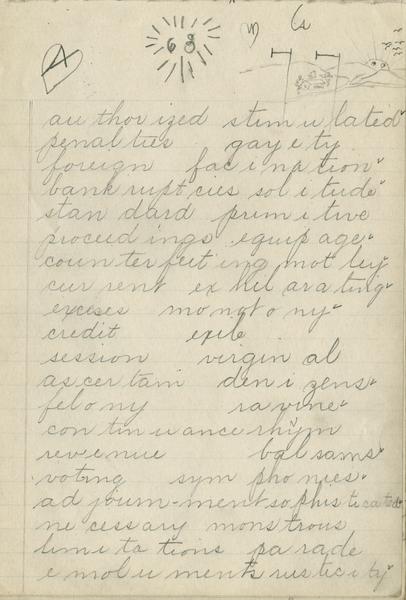 A 68
au thor ized stim u lated
penal ties gay e ty
foreign fac i na tion
bank rupt cies sol i tude
stan dard prim i tive
proceed ings equip age
coun ter feit ing mot ley
cur rent ex hil ar a ting
excises mo not o ny
credit exile
session virgin al
as cer tain den i zens
fel o ny ra vine
con tin u ance rhym
rev e nue bal sams
voting sym pho nies
ad journ-ment soph is ti cated
ne cessary mon strous
lim i ta tions pa rade
e mol u ment rus tic i ty